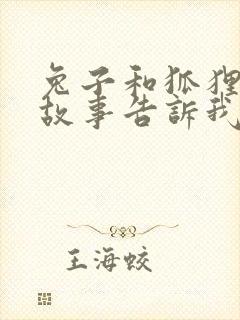 兔子和狐狸
故事告訴我
王海蛟